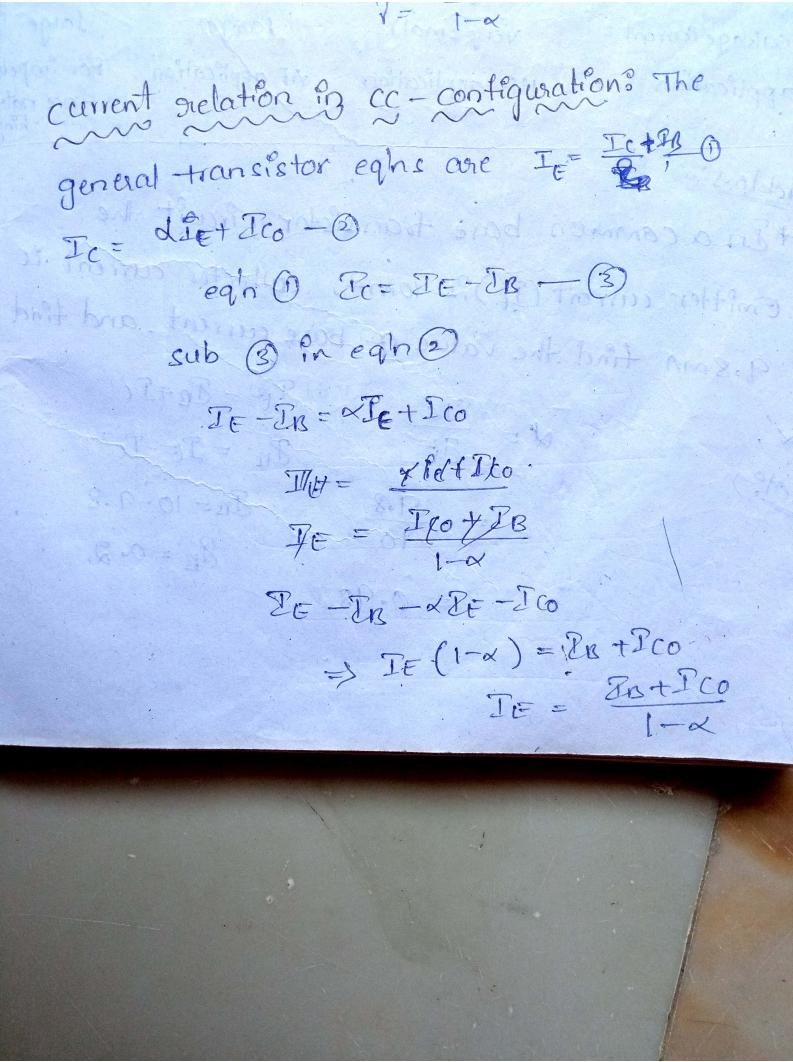 γ = 1-α
current relation in cc-configuration: The
general transistor eq'ns are I_E = I_C + I_B — ①
I_C = αI_E + I_CO — ②
eq'n ① I_C = I_E - I_B — ③
sub ③ in eq'n ②
I_E - I_B = αI_E + I_CO
I_E = I_CO + I_B / 1-α
I_E - I_B - αI_E - I_CO
⇒ I_E (1-α) = I_B + I_CO
I_E = I_B + I_CO / 1-α